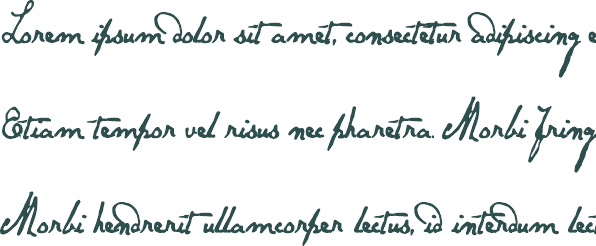 Lorem ipsum dolor sit amet, consectetur adipiscing e
Etiam tempor vel risus nec pharetra. Morbi fring
Morbi hendrerit ullamcorper lectus, id interdum lect